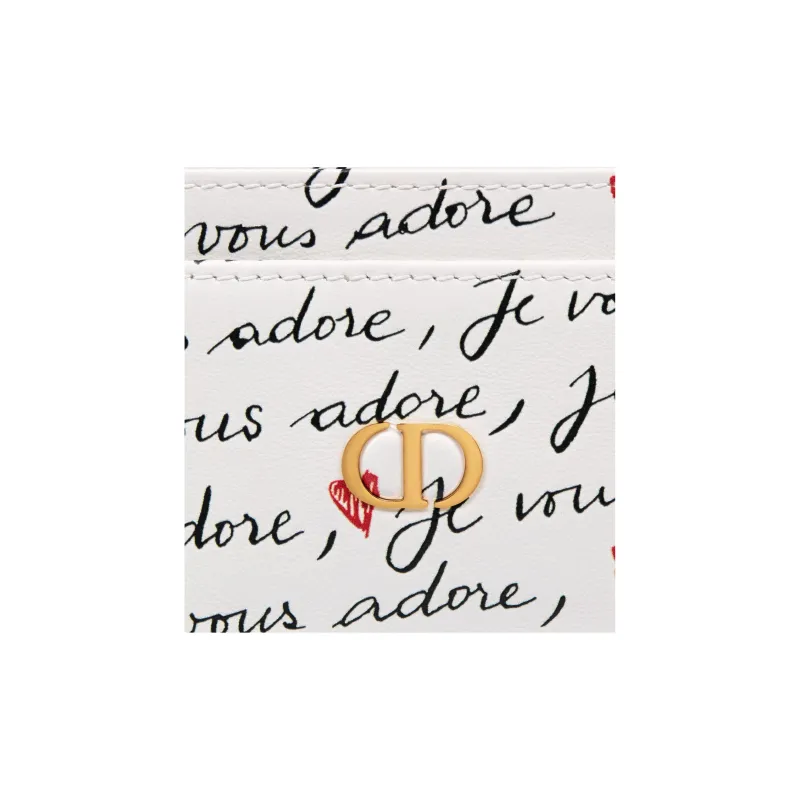 vous adore
adore, Je vo
ous adore, Je
CD
dore, Je vous
vous adore,